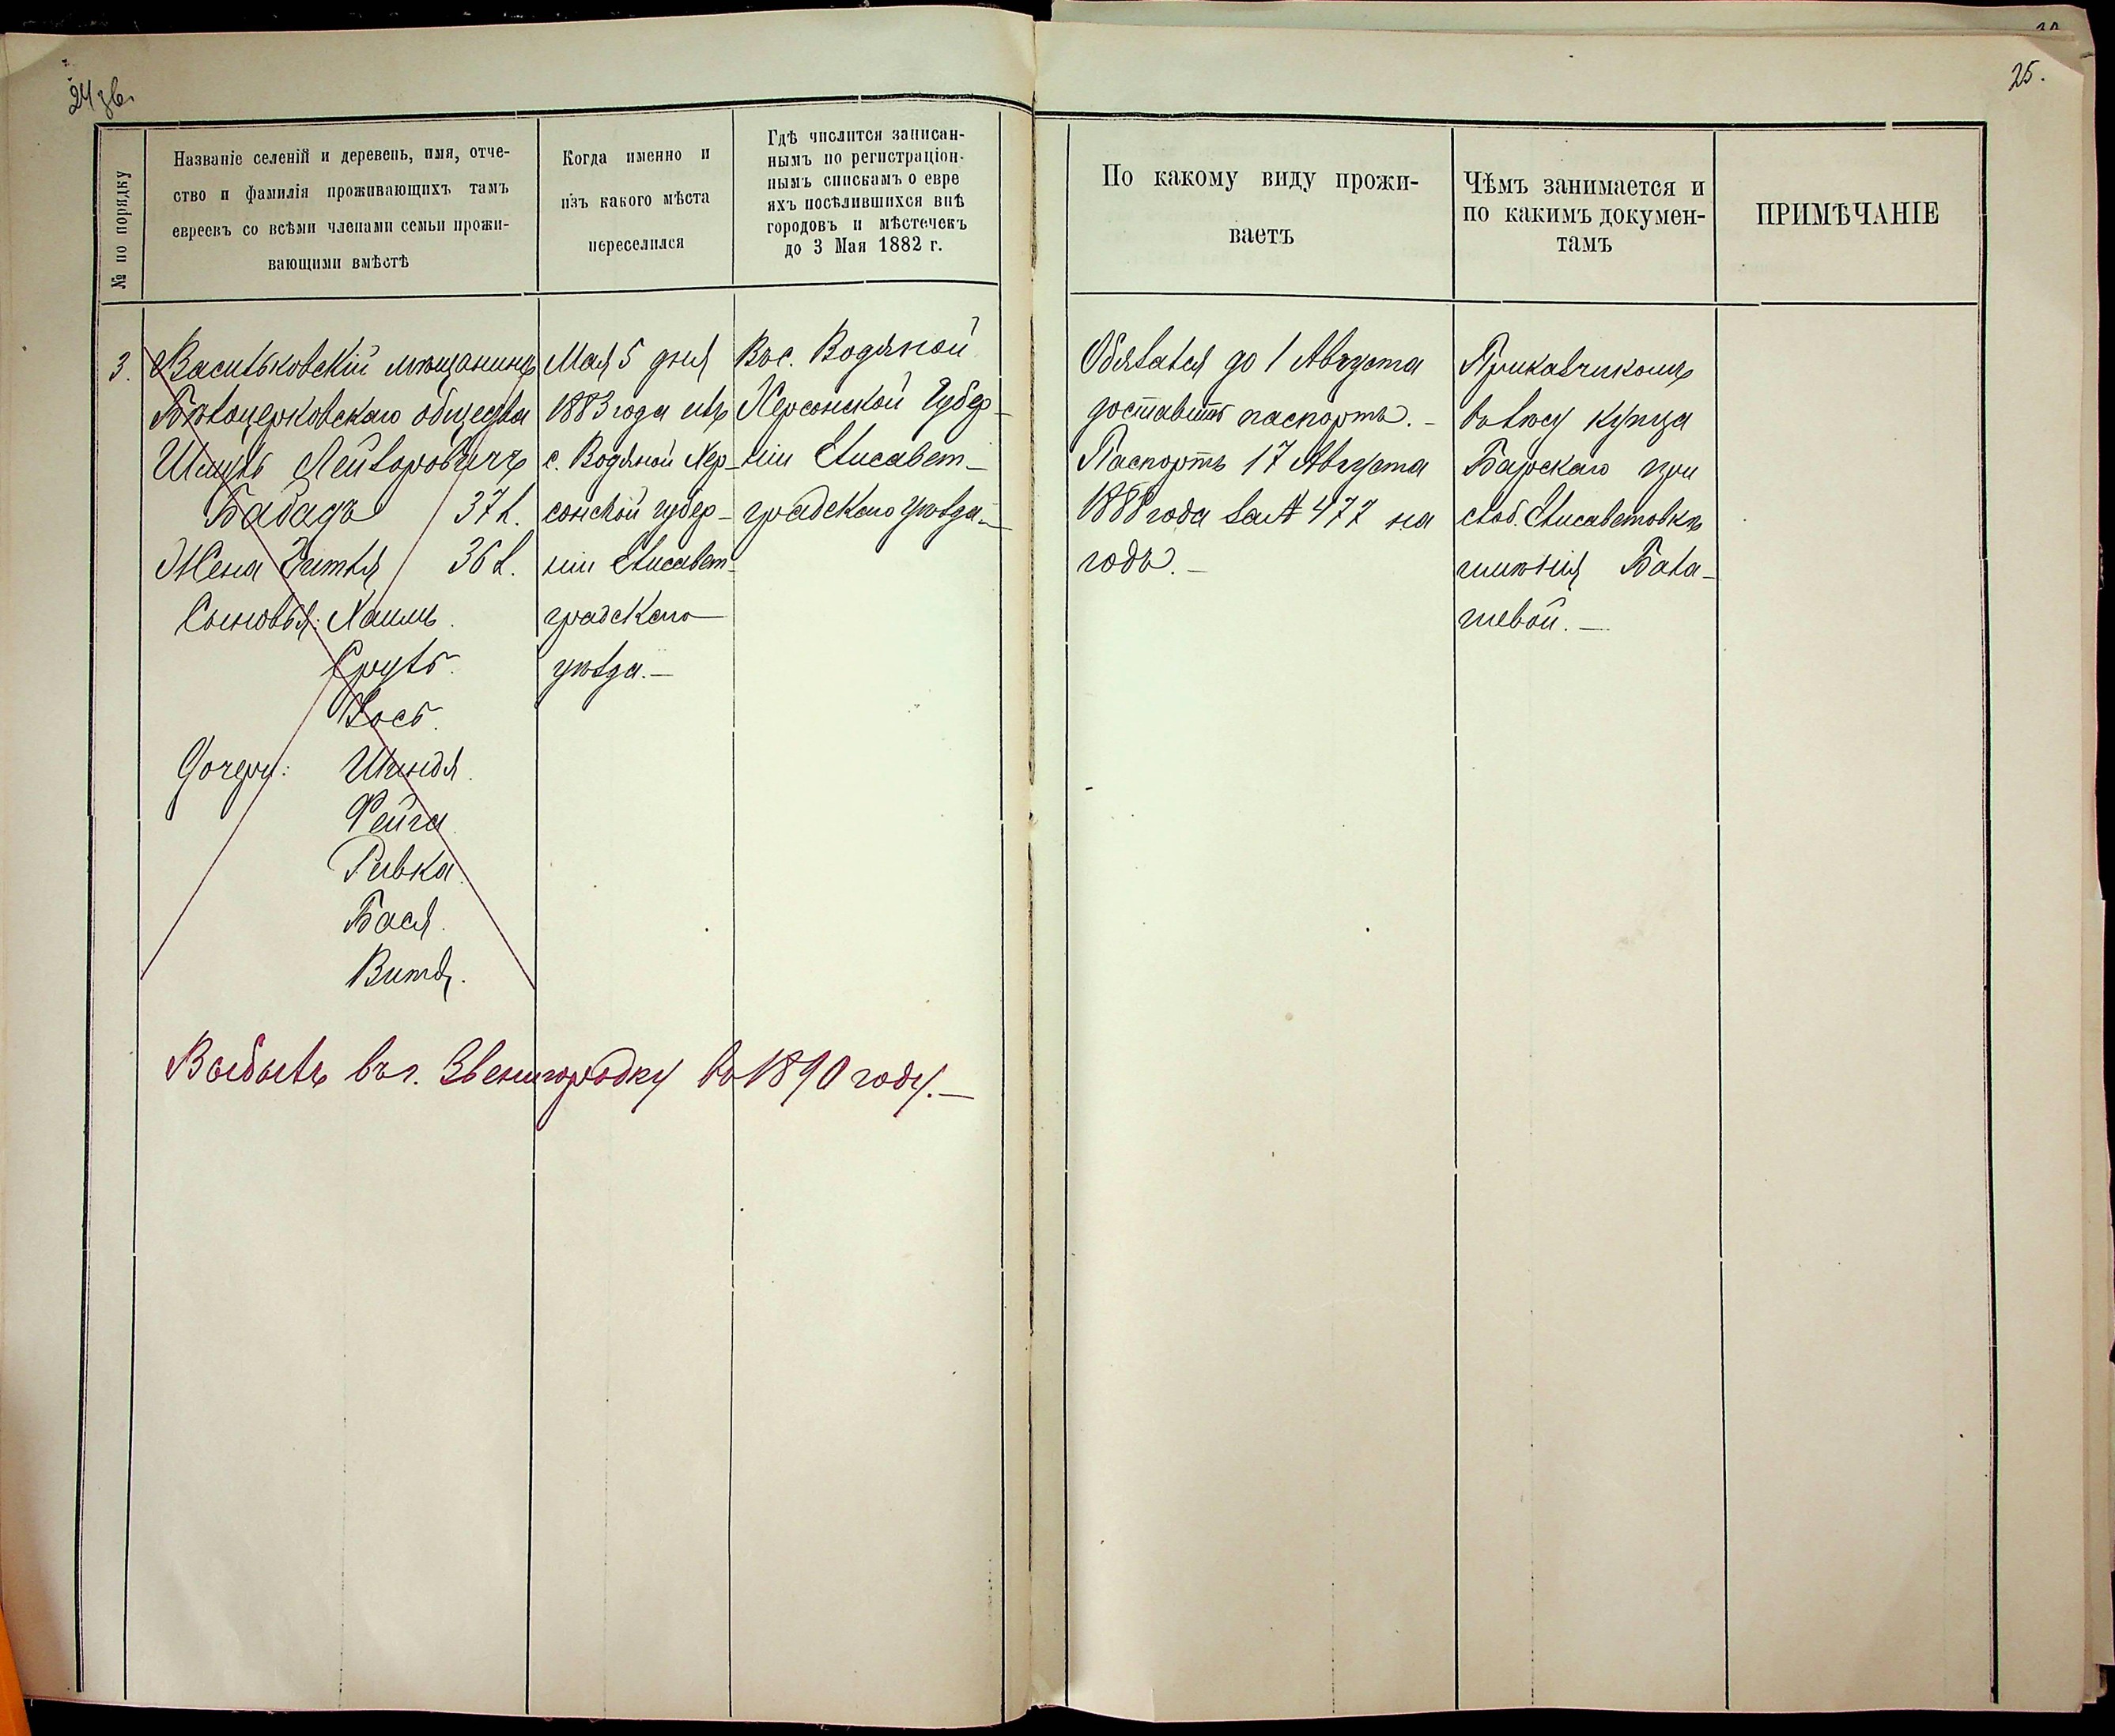 24 зв.
25.
№ по порядку
Названіе селеній и деревень, имя, отче-
ство и фамилія проживающихъ тамъ
евреевъ со всѣми членами семьи прожи-
вающими вмѣстѣ
Когда именно и
изъ какого мѣста
переселился
Гдѣ числится записан-
нымъ по регистраціон-
нымъ спискамъ о евре
яхъ посѣлившихся внѣ
городовъ и мѣстечекъ
до 3 Мая 1882 г.
По какому виду прожи-
ваетъ
Чѣмъ занимается и
по какимъ докумен-
тамъ
ПРИМѢЧАНІЕ
3.
Васильковскій мѣщанинъ
Бѣлоцерковскаго общества
Шмуль Лейзоровичъ
Бабадъ 37 л.
Жена Зитля 36 л.
Сыновья: Хаимъ.
Сруль.
Іось.
Дочери: Шиндля.
Фейга
Ривка.
Бася.
Витя.
Мая 5 дня
1883 года изъ
с. Водяной Хер-
сонской губер-
ніи Елисавет-
градскаго
уѣзда.—
Въ с. Водяной
Херсонской Губер-
ніи Елисавет-
градскаго уѣзда.—
Обязался до 1 Августа
доставить паспортъ.—
Паспортъ 17 Августа
1888 года за № 477 на
годъ.—
Прикащикомъ
въ лѣсу купца
Барскаго при
слоб. Елисаветовкѣ
имѣнія Бала-
шевой.—
Выбылъ въ г. Звенигородку въ 1890 году.—